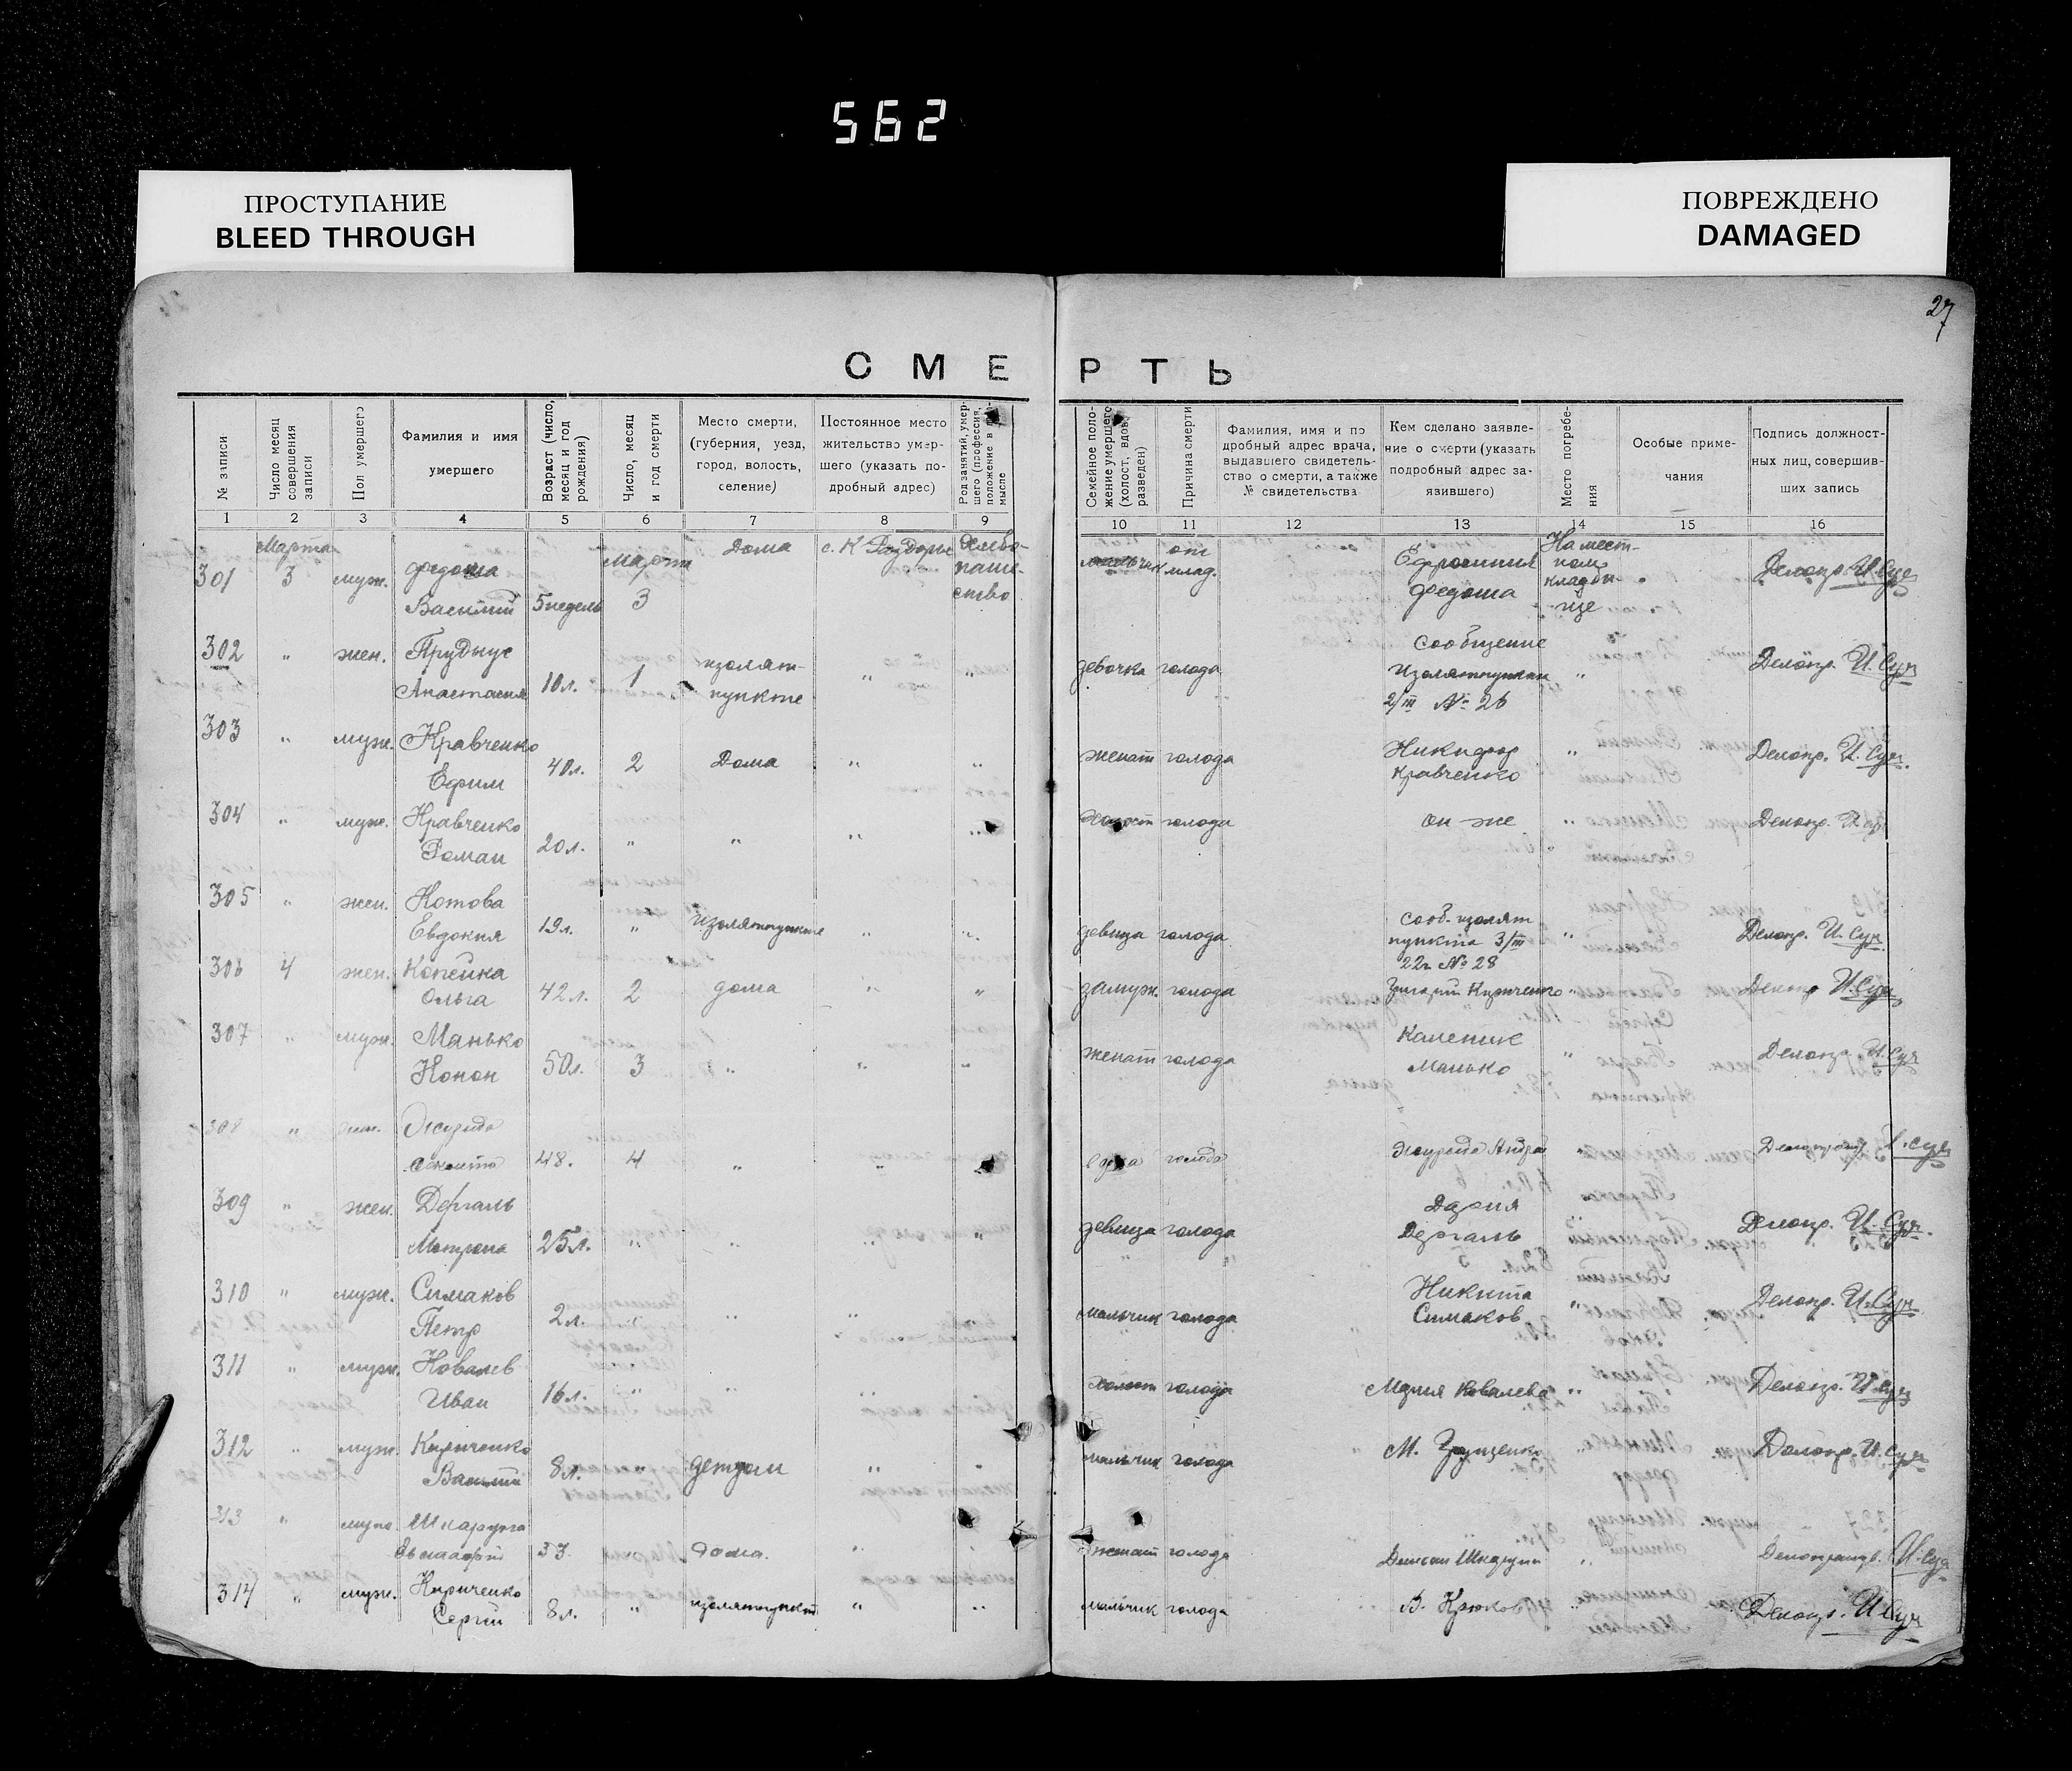 562
ПРОСТУПАНИЕ
BLEED THROUGH
ПОВРЕЖДЕНО
DAMAGED
27
СМЕРТЬ
№ записи
Число месяц
совершения
записи
Пол умершего
Фамилия и имя
умершего
Возраст (число,
месяц и год
рождения)
Число, месяц
и год смерти
Место смерти,
(губерния, уезд,
город, волость,
селение)
Постоянное место
жительство умер-
шего (указать по-
дробный адрес)
Род занятий, умер-
шего (профессия,
положение в
мысле
Семейное поло-
жение умершего
(холост, вдов,
разведен)
Причина смерти
Фамилия, имя и по
дробный адрес врача,
выдавшего свидетель-
ство о смерти, а также
№ свидетельства
Кем сделано заявле-
ние о смерти (указать
подробный адрес за-
явившего)
Место погребе-
ния
Особые приме-
чания
Подпись должност-
ных лиц, совершив-
ших запись
1 2 3 4 5 6 7 8 9 10 11 12 13 14 15 16
Марта Март Дома с. К Раздоры Хлебо- от На мест-
301 3 муж. Федоша паше- млад. Ефросиния ном Делопр. И. Сук
Василий 5 недель 3 ство Федоша кладби-
ще
302 " жен. Прудиус изолят- Сообщение
Анастасия 10 л. 1 пункте " " девочка голода Изолятпункта " Делопр. И. Сук
2/III № 26
303 " муж. Кравченко
Ефим 40 л. 2 Дома " " женат голода Никифор " Делопр. И. Сук.
Кравченко
304 " муж. Кравченко холост голода он же " Делопр. И.
Роман 20 л. " " " "
305 " жен. Котова
Евдокия 19 л. " изолятпункте " " девица голода Сооб. изолят " Делопр. И. Сук
пункта 3/III
22 г. № 28
306 4 жен. Копейка
Ольга 42 л. 2 дома " " замуж. голода Григорий Кириченко " Делопр И. Сук
307 " муж. Манько Каленик
Конон 50 л. 3 " " " женат голода Манько " Делопр. И. Сук
308 " Журида
48. 4 " " голода Журида Андрей " Делопроизв. И. Сук
309 " жен. Дергаль Дария
Мотрона 25 л. " " " " девица голода Дергаль Делопр. И. Сук.
310 " муж. Симаков Никита
Петр 2 л. " " " мальчик голода Симаков " Делопр. И. Сук
311 " муж. Ковалев
Иван 16 л. " " " " холост голода Мария Ковалева " Делопр. И. Сук
312 " муж. Кириченко
Василий 8 л. " детдом " " мальчик голода М. Грищенко " Делопр. И. Сук
313 " муж. Шкарупа
33. дома. " женат голода Шкарупа " Делопроизв. И. Сук
314 " муж. Кириченко
Сергей 8 л. " изолятпункт " " мальчик голода В. Крюков " Делопр. И. Сук